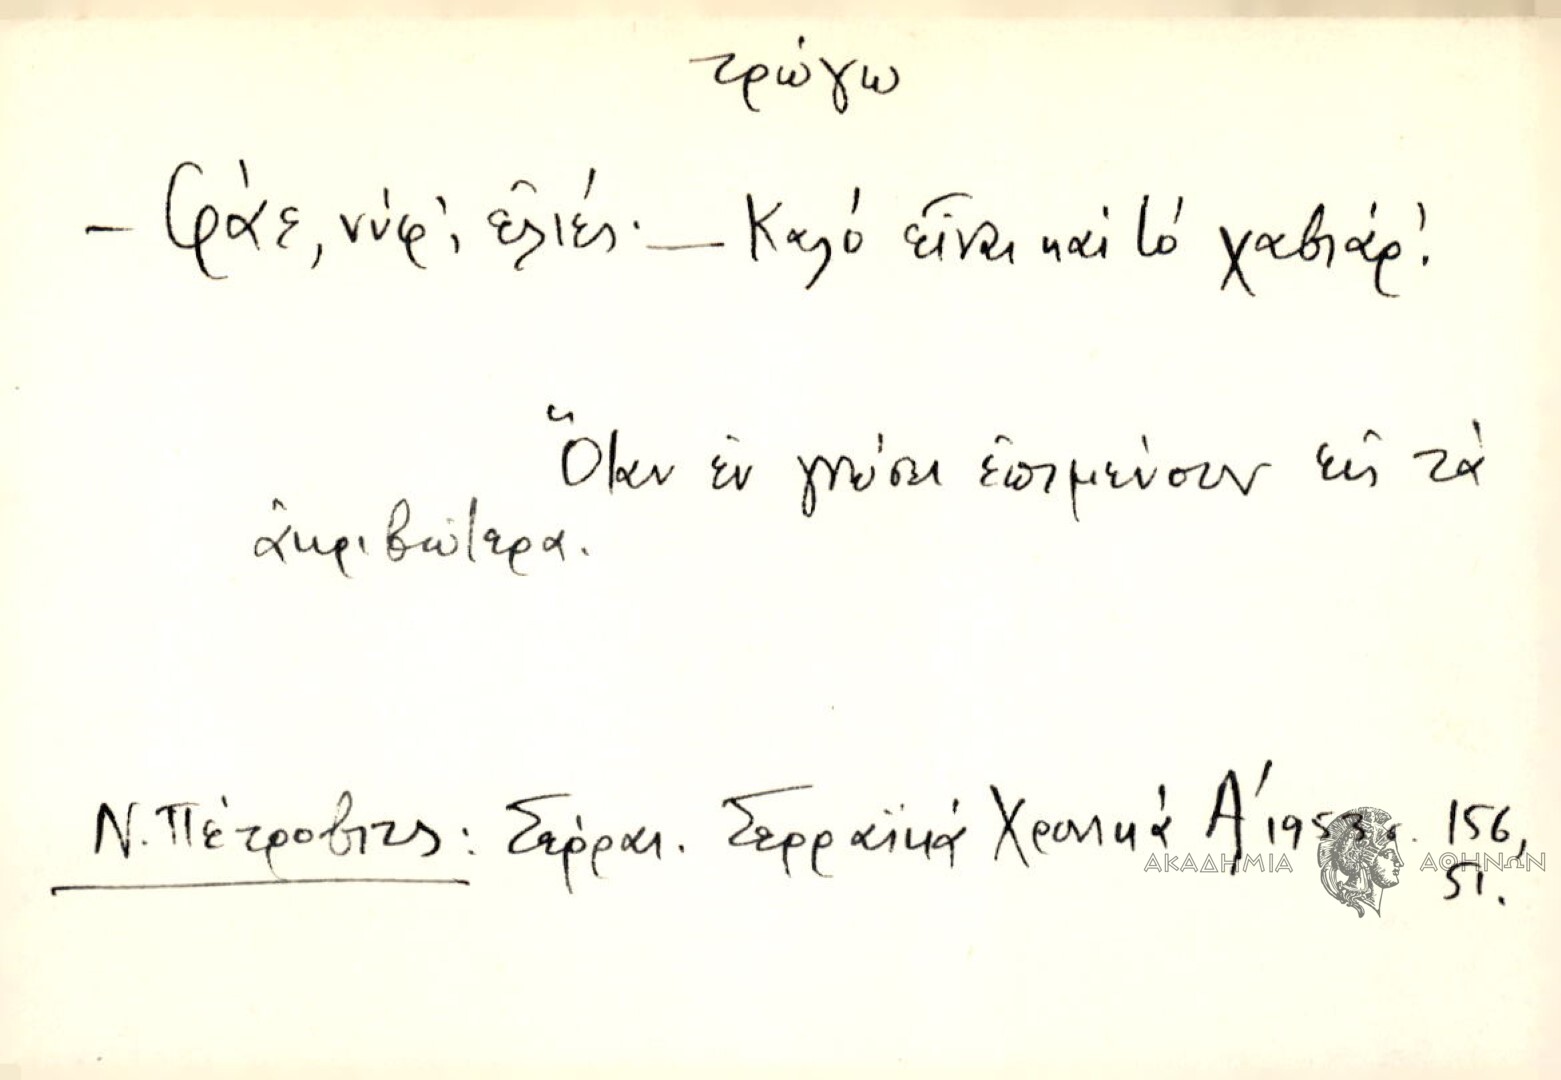 τρώγω
— Φάε, νύφ', ἐλιές. — Καλό εἶναι καί τό χαβιάρ'.
Ὅταν ἐν γνώσει ἐπιμένουν εἰς τά
ἀκριβώτερα.
Ν. Πέτροβιτς: Σέρραι. Σερραϊκά Χρονικά Α' 1953 σ. 156,
51.
ΑΚΑΔΗΜΙΑ ΑΘΗΝΩΝ